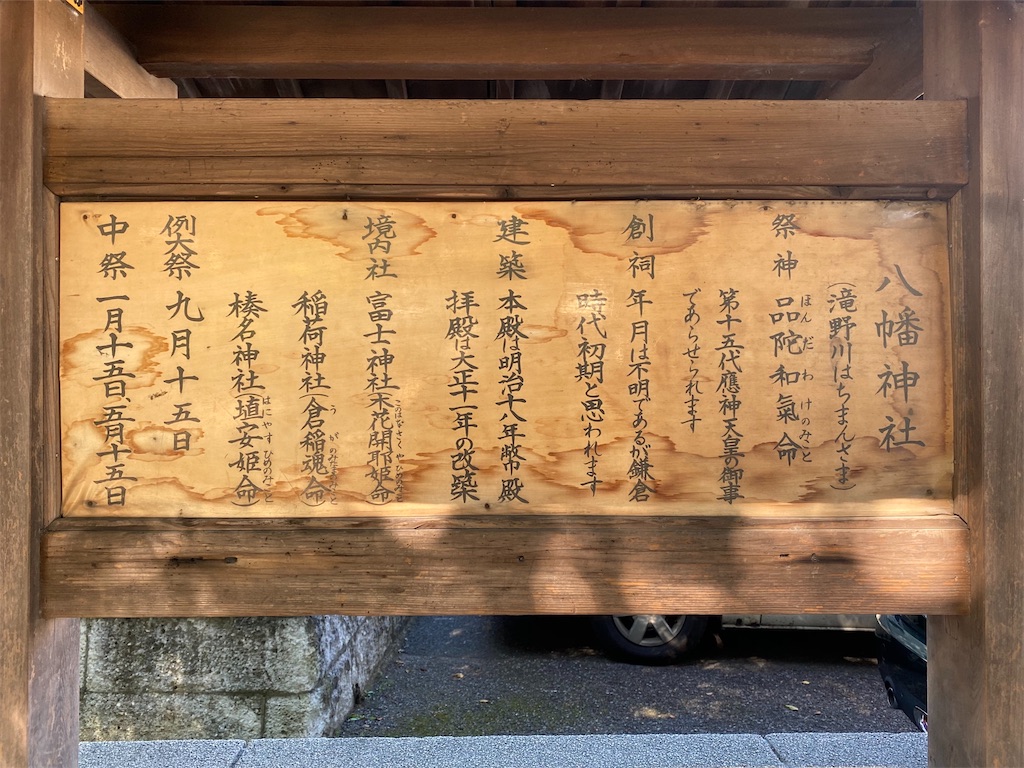 八幡神社
(滝野川はちまんさま)
祭神 品陀和氣命
ほんだわけのみこと
第十五代應神天皇の御事
であらせられます
創祠 年月は不明であるが鎌倉
時代初期と思われます
建築 本殿は明治十八年幣殿
拝殿は大正十一年の改築
境内社 富士神社(木花開耶姫命)
このはなさくやひめのみこと
稲荷神社(倉稲魂命)
うがのみたまのみこと
榛名神社(埴安姫命)
はにやすひめのみこと
例大祭 九月十五日
中祭 一月十五日、五月十五日